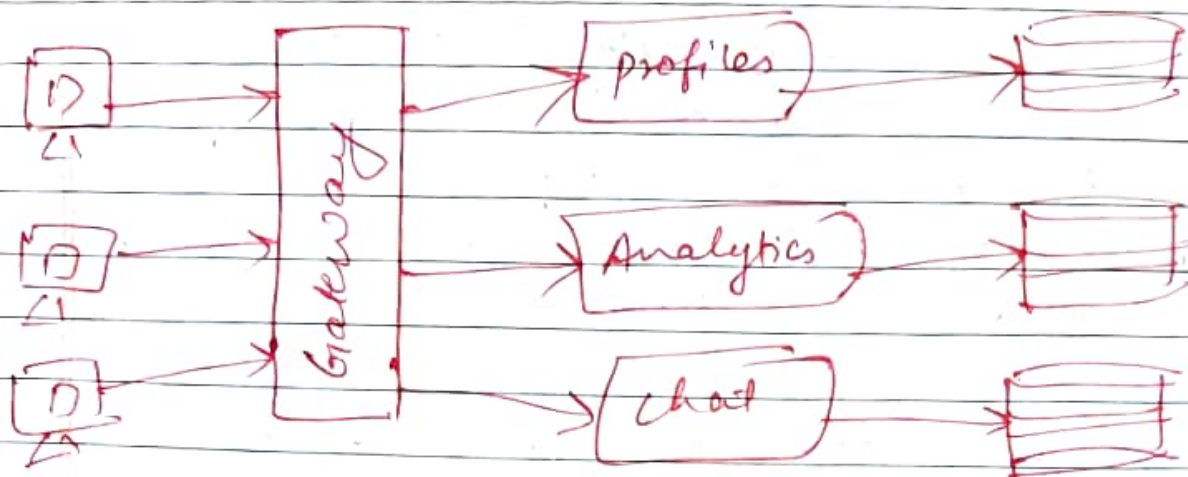 D
D
D
Gateway
profiles
Analytics
chat